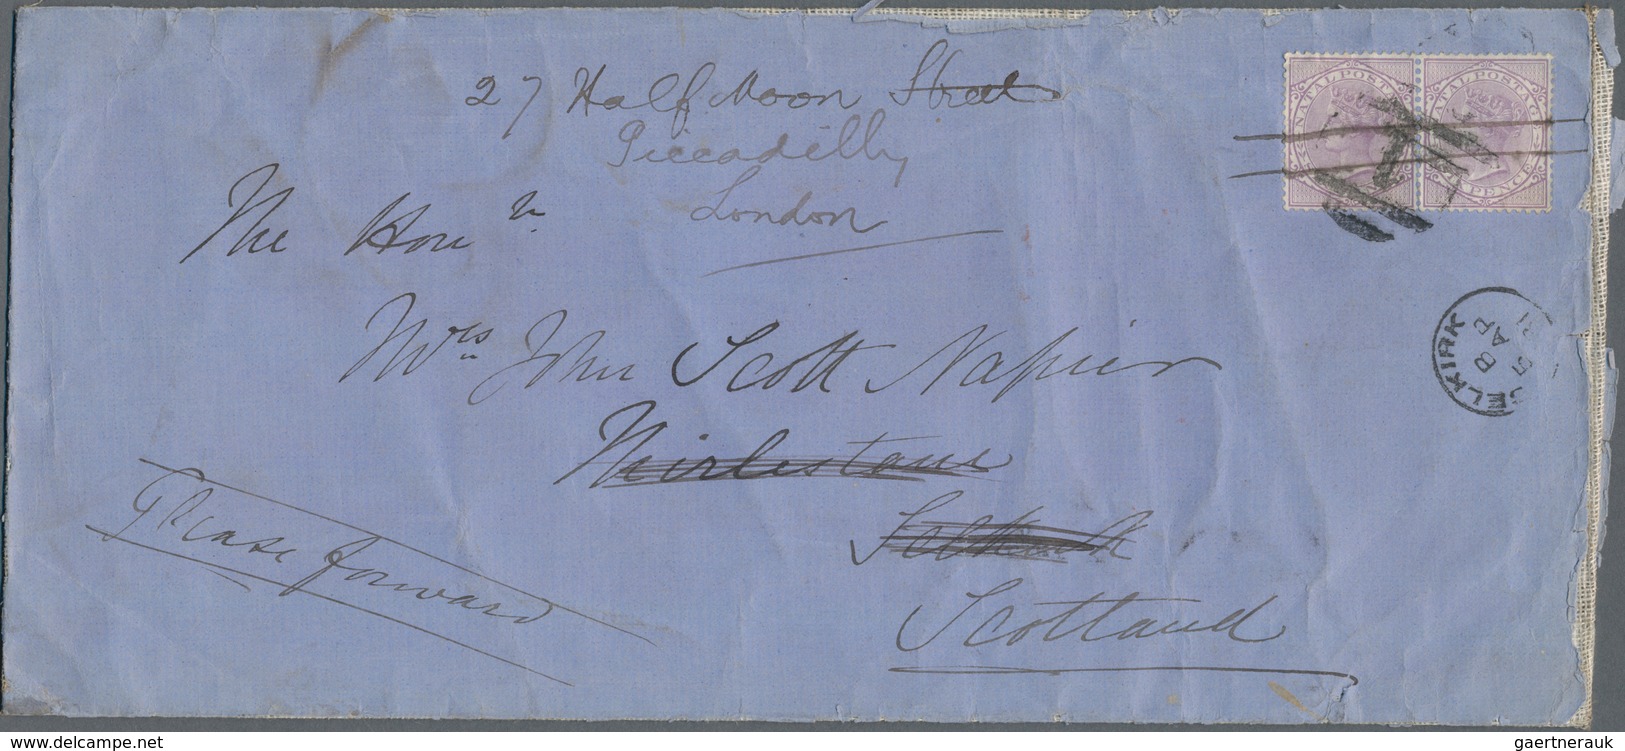 27 Half Moon Street
Piccadilly
London
The Honble
Mrs John Scott Napier
Thirlestane
Selkirk
Scotland
Please forward
NATAL POSTAGE
NATAL POSTAGE
SIXPENCE
SELKIRK
B
AP 5
81
© www.delcampe.net
gaertnerauk